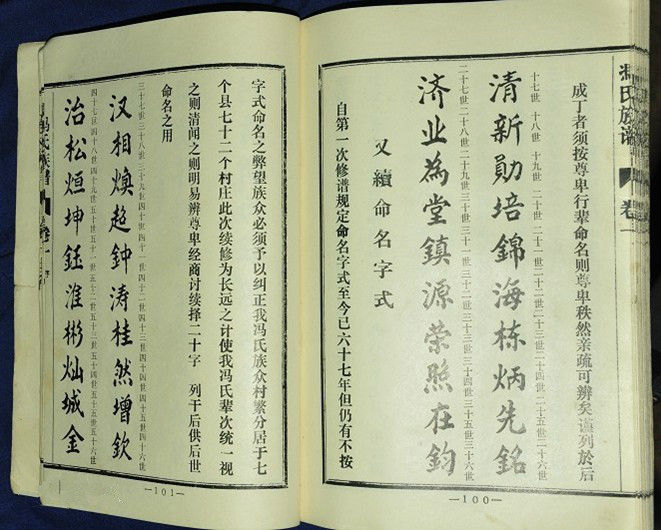 馮氏族谱 卷一
成丁者须按尊卑行辈命名则尊卑秩然亲疏可辨矣谨列於后
十七世 十八世 十九世 二十世 二十一世 二十二世 二十三世 二十四世 二十五世 二十六世
清新勋培錦海栋炳先銘
二十七世 二十八世 二十九世 三十世 三十一世 三十二世 三十三世 三十四世 三十五世 三十六世
济业為堂鎮源荣熙在鈞
又續命名字式
自第一次修谱规定命名字式至今已六十七年但仍有不按
—100—
字式命名之弊望族众必须予以纠正我冯氏族众村繁分居于七
个县七十二个村庄此次续修为长远之计使我冯氏辈次统一视
之则清闻之则明易辨尊卑经商讨续择二十字 列于后供后世
命名之用
三十七世 三十八世 三十九世 四十世 四十一世 四十二世 四十三世 四十四世 四十五世 四十六世
汉相煥超鐘涛桂然增欽
四十七世 四十八世 四十九世 五十世 五十一世 五十二世 五十三世 五十四世 五十五世 五十六世
治松烜坤鈺淮彬灿城金
—101—
冯氏族谱 卷一